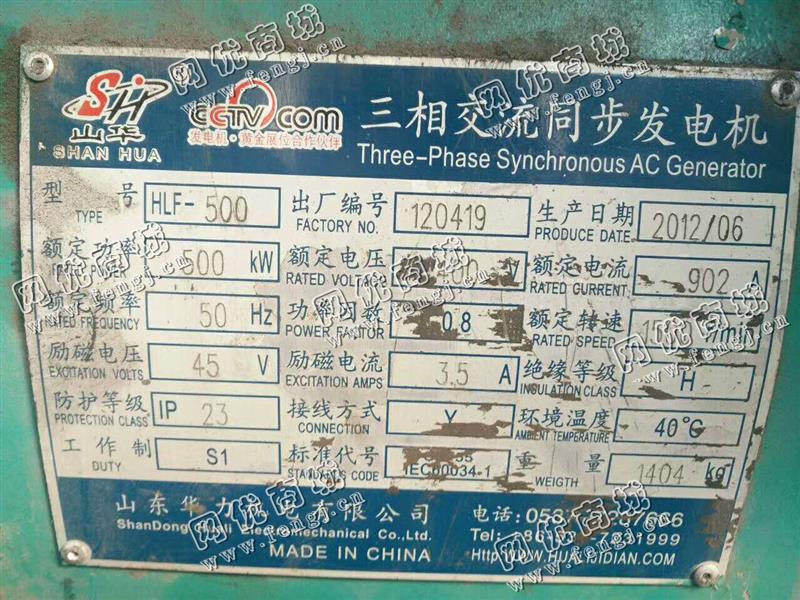 SH
山华
SHAN HUA
CCTV.com
发电机·黄金展位合作伙伴
三相交流同步发电机
Three-Phase Synchronous AC Generator
型号 TYPE HLF-500 出厂编号 FACTORY NO. 120419 生产日期 PRODUCE DATE 2012/06
额定功率 500 kW 额定电压 RATED VOLTAGE V 额定电流 RATED CURRENT 902 A
额定频率 RATED FREQUENCY 50 Hz 功率因数 POWER FANTOR 0.8 额定转速 RATED SPEED r/min
励磁电压 EXCITATION VOLTS 45 V 励磁电流 EXCITATION AMPS 3.5 A 绝缘等级 INSULATION CLASS H
防护等级 PROTECTION CLASS IP 23 接线方式 CONNECTION Y 环境温度 AMBIENT TEMPERATURE 40°C
工作制 DUTY S1 标准代号 STANDARDS CODE IEC60034-1 重量 WEIGTH 1404 kg
山东华力机电有限公司
ShanDong Huali Electromechanical Co.,Ltd.
MADE IN CHINA
电话:
Tel:
网优商城
www.fengj.cn